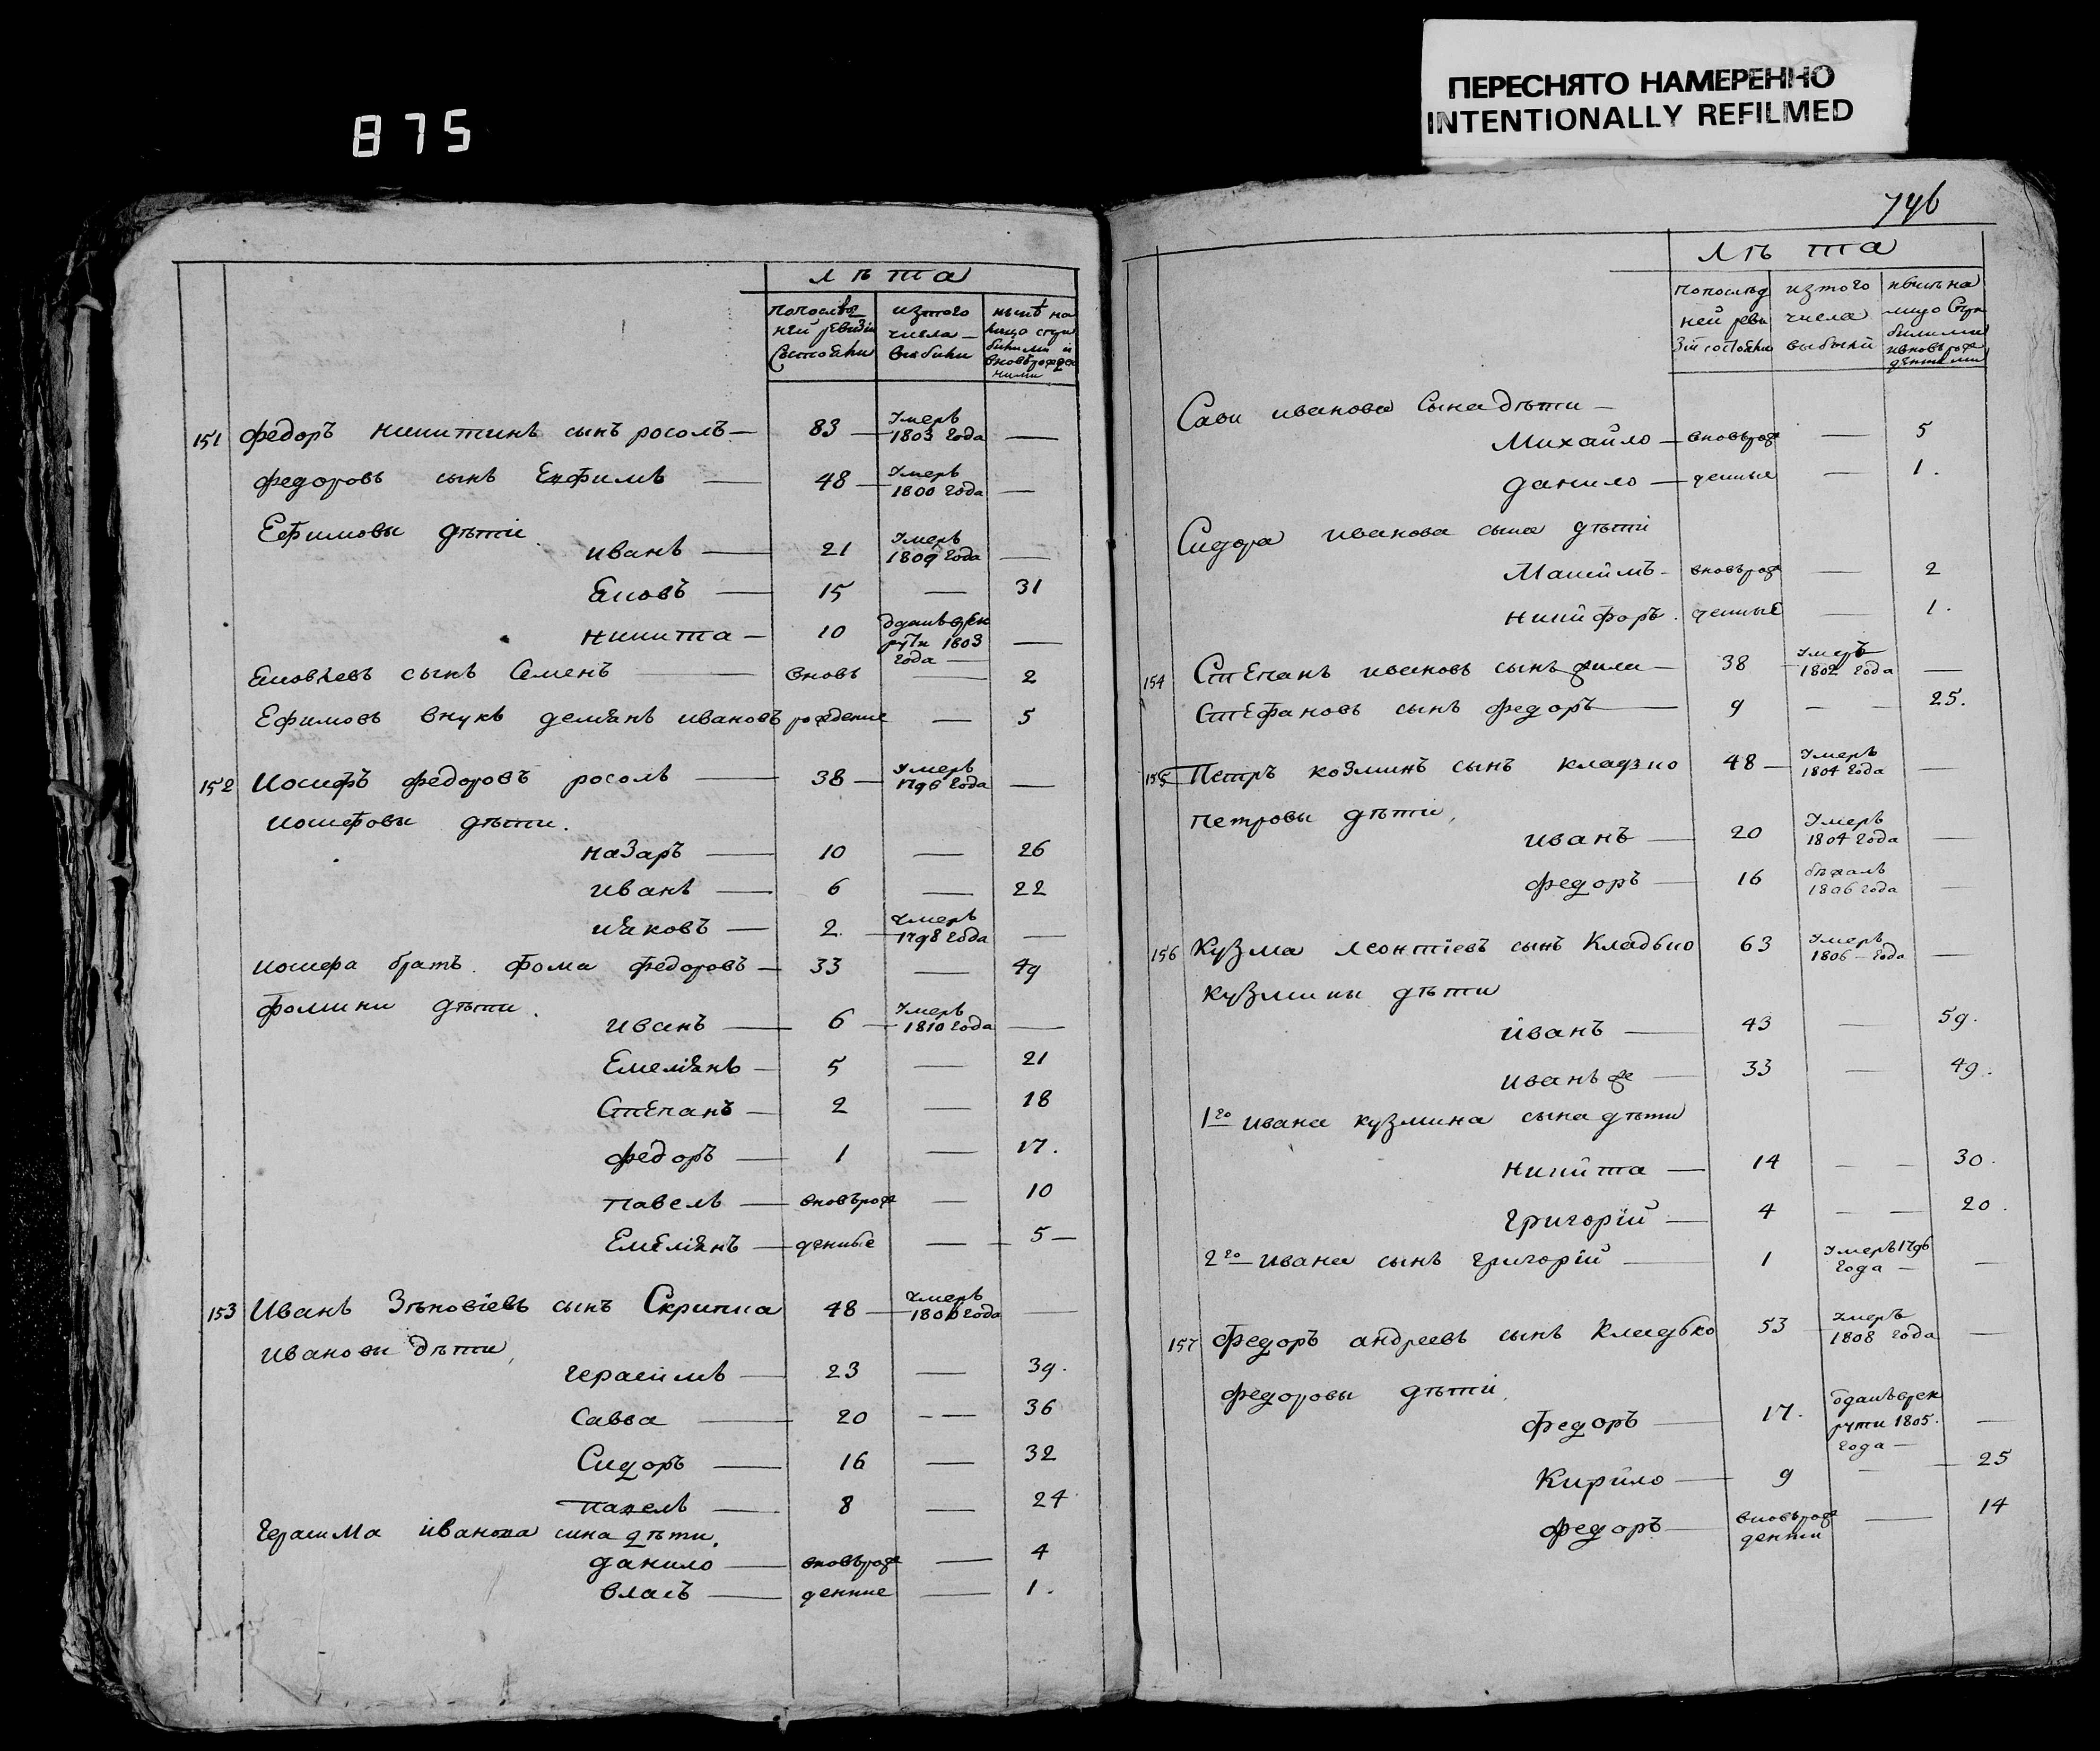 875
ПЕРЕСНЯТО НАМЕРЕННО
INTENTIONALLY REFILMED
лѣта
попослѣд ней ревизіи состояли
изтого числа выбыли
нынѣ на лицо
151 федоръ никитинъ сынъ росолъ — 83 — умеръ 1803 года —
федоровъ сынъ Ефимъ — 48 — умеръ 1800 года —
Ефимовы дѣти
иванъ — 21 умеръ 1809 года —
Яковъ — 15 — 31
никита — 10 1803 года —
Яковлевъ сынъ Семенъ — вновь — 2
Ефимовъ внукъ демянъ ивановъ рожденые — 5
152 Иосифъ федоровъ росолъ — 38 — умеръ 1796 года —
иосифовы дѣти.
назаръ — 10 — 26
иванъ — 6 — 22
ияковъ — 2. — умеръ 1798 года —
иосифа братъ фома федоровъ — 33 — 49
фомини дѣти.
иванъ — 6 — умеръ 1810 года —
Емелiянъ — 5 — 21
Степанъ — 2 — 18
федоръ — 1 — 17.
павелъ — вновърож — 10
Емелiянъ — денные — 5 —
153 Иванъ Зѣновiевъ сынъ Скрипка 48 — умеръ года —
ивановы дѣти,
герасимъ — 23 — 39.
Савва — 20 — 36
Сидоръ — 16 — 32
павелъ — 8 — 24
герасима иванова сина дѣти.
данило — вновърож — 4
власъ — денные — 1.
746
лѣта
попослѣд ней реви зіи состояли
изтого числа выбыли
на лицо
Сави иванова сына дѣти —
Михайло — вновърож — 5
данило — денные — 1.
Сидора иванова сына дѣтi
Максимъ — вновърож — 2
никифоръ. денные — 1.
154 Степанъ ивановъ сынъ — 38 — умеръ 1802 года —
Стефановъ сынъ федоръ — 9 — — 25.
155 Петръ козминъ сынъ кладько 48 — умеръ 1804 года —
петровы дѣти,
иванъ — 20 умеръ 1804 года —
федоръ — 16 бѣжалъ 1806 года —
156 Кузма леонтiевъ сынъ Кладько 63 умеръ 1806 — года —
кузмины дѣти
иванъ — 43 — 59.
иванъ же — 33 — 49.
1го ивана кузмина сына дѣти
никита — 14 — — 30.
григорiй — 4 — — 20.
2го ивана сынъ григорiй — 1 умеръ 1796 года — —
157 федоръ андреевъ сынъ Кладько 53 умеръ 1808 года —
федоровы дѣтi,
федоръ — 17. рути 1805. года — —
Кирило — 9 — 25
федоръ — вновърож денни — 14